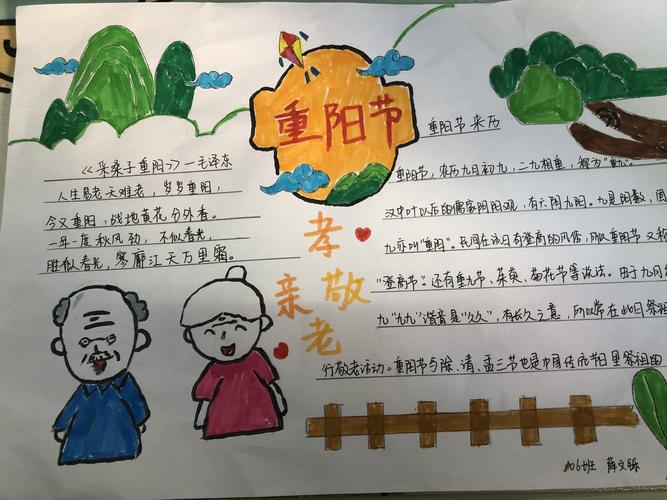 重阳节
《采桑子重阳》—毛泽东
人生易老天难老，岁岁重阳，
今又重阳，战地黄花分外香。
一年一度秋风劲，不似春光，
胜似春光，寥廓江天万里霜。
孝
亲 敬
老
重阳节来历
重阳节，农历九月初九，二九相重，称为"重九"。
汉中叶以后的儒家阴阳观，有六阴九阳。九是阳数，固
九亦叫"重阳"。民间在该日有登高的风俗，所以重阳节又
"登高节"。还有重九节、茱萸、菊花节等说法。由于九月
九"九九"谐音是"久久"，有长久之意，所以常在此日祭祖
行敬老活动。重阳节与除、清、盂三节也是中国传统节日里祭祖的
06班 薛文铄